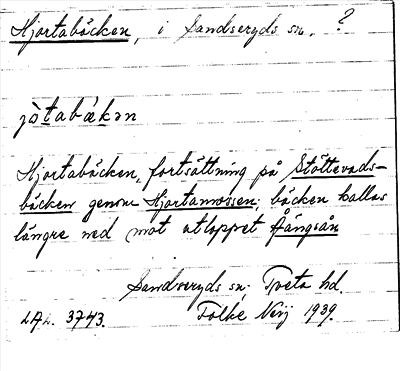 Hjortabäcken, i Sandseryds sn. ?
jo̊tabäkən
Hjortabäcken, fortsättning på Stöttevads-
bäcken genom Hjortamossen, bäcken kallas
längre ned mot utloppet Gångsån
Sandseryds sn. Tveta hd.
LAL. 3743. Folke Verj 1939.